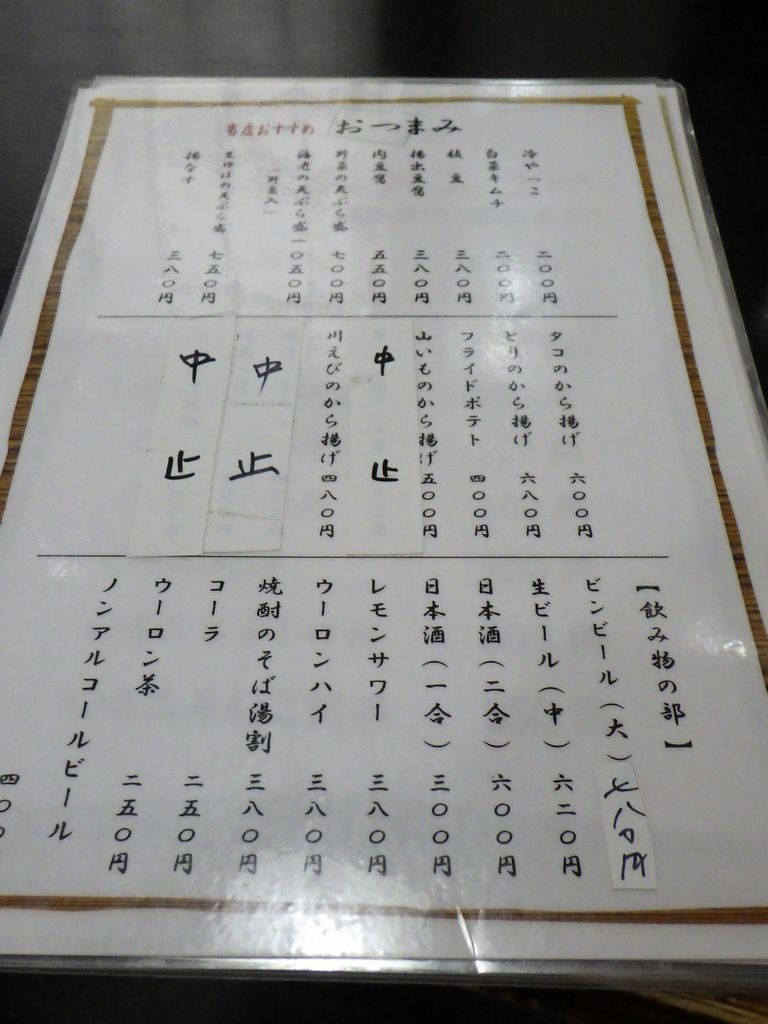 おつまみ
当店おすすめ
冷やっこ 二〇〇円
白菜キムチ 二〇〇円
枝豆 三八〇円
揚出豆腐 三八〇円
肉豆腐 五五〇円
野菜の天ぷら盛 七〇〇円
海老の天ぷら盛 一〇五〇円
(野菜入)
生ゆばの天ぷら盛 七五〇円
揚なす 三八〇円
タコのから揚げ 六〇〇円
とりのから揚げ 六八〇円
フライドポテト 四〇〇円
山いものから揚げ 五〇〇円
中止
川えびのから揚げ 四八〇円
中止
中止
【飲み物の部】
ビンビール(大) 七八〇円
生ビール(中) 六二〇円
日本酒(二合) 六〇〇円
日本酒(一合) 三〇〇円
レモンサワー 三八〇円
ウーロンハイ 三八〇円
焼酎のそば湯割 三八〇円
コーラ 二五〇円
ウーロン茶 二五〇円
ノンアルコールビール 四〇〇